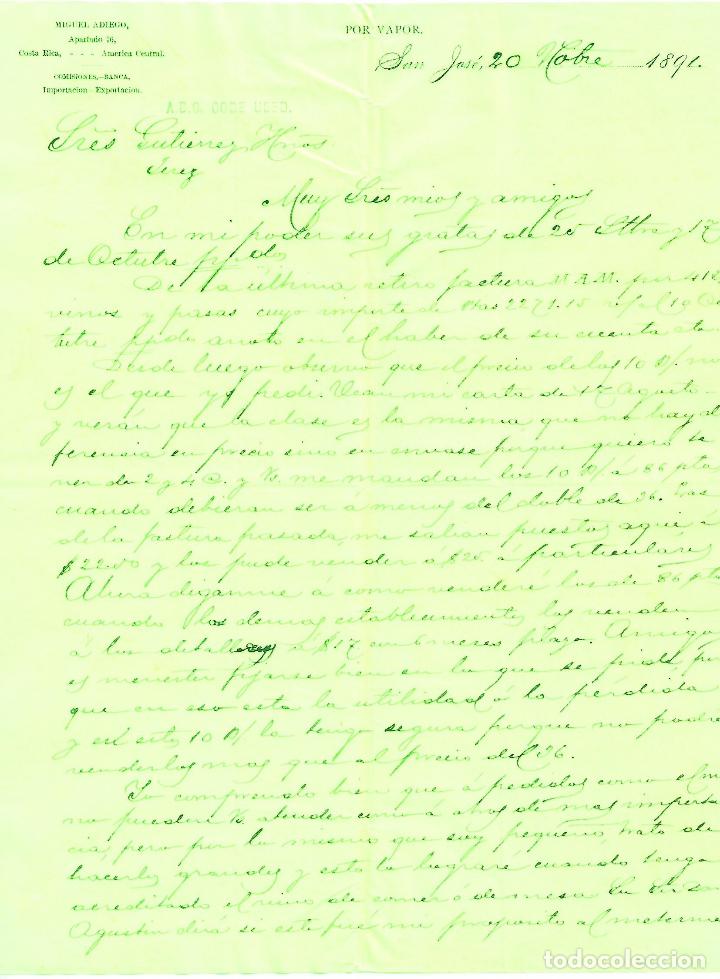 MIGUEL ADIEGO,
Apartado 76,
Costa Rica, - - - America Central.
COMISIONES,-BANCA,
Importacion - Exportacion.
POR VAPOR,
San José, 20 Nobre 1891.
A.B.C. CODE USED.
Sres Gutierrez Hnos
Jerez
Muy Sres mios y amigos
En mi poder sus gratas de 25 Stbre y 17
de Octubre ppdo
De la última retiro factura M.A.M. por 418
vinos y pasas cuyo importe de Ptas 2271.15
tubre ppdo anoto en el haber de su cuenta
Desde luego observo que el precio de los 10 B/. no
es el que yo pedi. Vean mi carta de Agosto
y verán que la clase es la misma que no hay di
ferencia en precio sino en envase porque quiero
me mandan los 10 B/ a 86 pta
cuando debieran ser á menos del doble de 36. Las
de la factura pasada, me salian puestas aqui á
$22.00 y los pude vender á $25. á particulares
Ahora diganme á como venderé los de 86 pta
cuando los demas establecimientos los venden
á los detallistas á $17 con 6 meses plazo. Amigo
es menester fijarse bien en lo que se pide por
que en eso esta la utilidad ó la pérdida
y en esto 10 B/ la tengo segura porque no podre
venderlos mas que al precio del 36.
Yo comprendo bien que á pedidos como el mio
no pueden V. atender como á otros de mas importa
cia, pero por lo mismo que soy pequeño, trato de
hacerlos grandes y esto lo lograré cuando tenga
acreditado el vino de comer ó de mesa
Agustin dirá si este fué mi proposito al meterme
todocoleccion